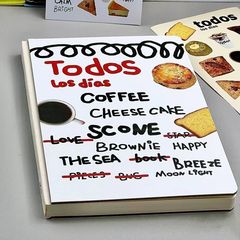 CALM
BRIGHT
todos
Todos
los días
COFFEE
CHEESE CAKE
SCONE
LOVE
STAR
BROWNIE HAPPY
THE SEA book BREEZE
PIECES BUG MOON LIGHT